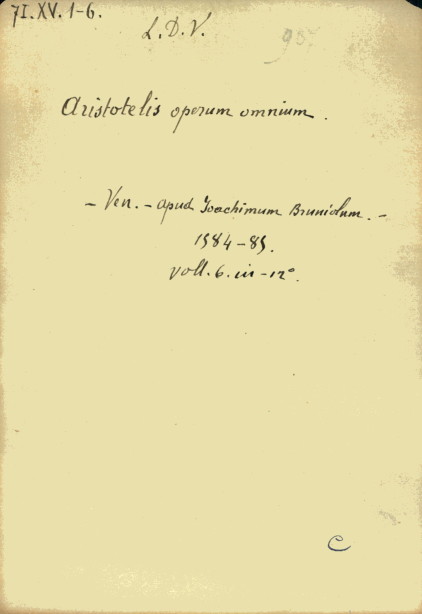 71.XV.1-6.
L.D.V.
90.
Aristotelis operum omnium.
- Ven. - apud Joachimum Bruniolum. -
1584-85.
voll. 6. in-12°.
C